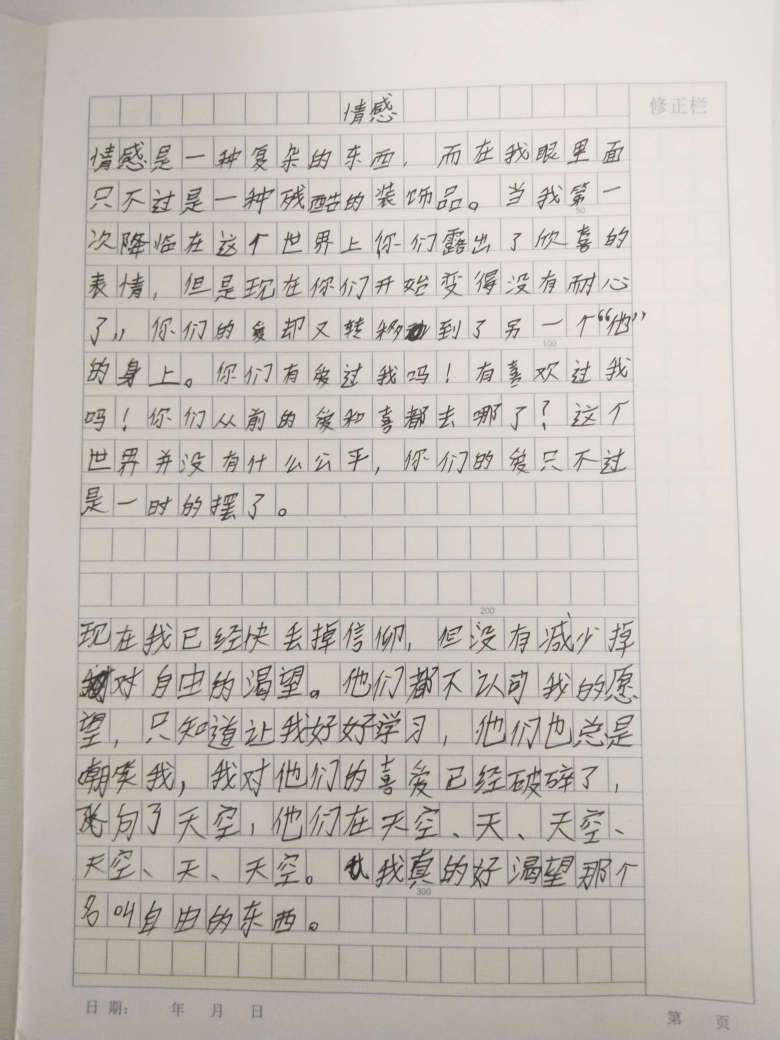 情感
修正栏
情感是一种复杂的东西，而在我眼里面
只不过是一种残酷的装饰品。当我第一
50
次降临在这个世界上你们露出了欣喜的
表情，但是现在你们开始变得没有耐心
了，你们的爱却又转移到了另一个“他”
100
的身上。你们有爱过我吗！有喜欢过我
吗！你们从前的爱和喜都去哪了？这个
世界并没有什么公平，你们的爱只不过
是一时的摆了。
200
现在我已经快丢掉信仰，但没有减少掉
对自由的渴望。他们都不认可我的愿
望，只知道让我好好学习，他们也总是
嘲笑我，我对他们的喜爱已经破碎了，
飞向了天空，他们在天空、天、天空、
天空、天、天空。我真的好渴望那个
300
名叫自由的东西。
日期： 年 月 日
第 页